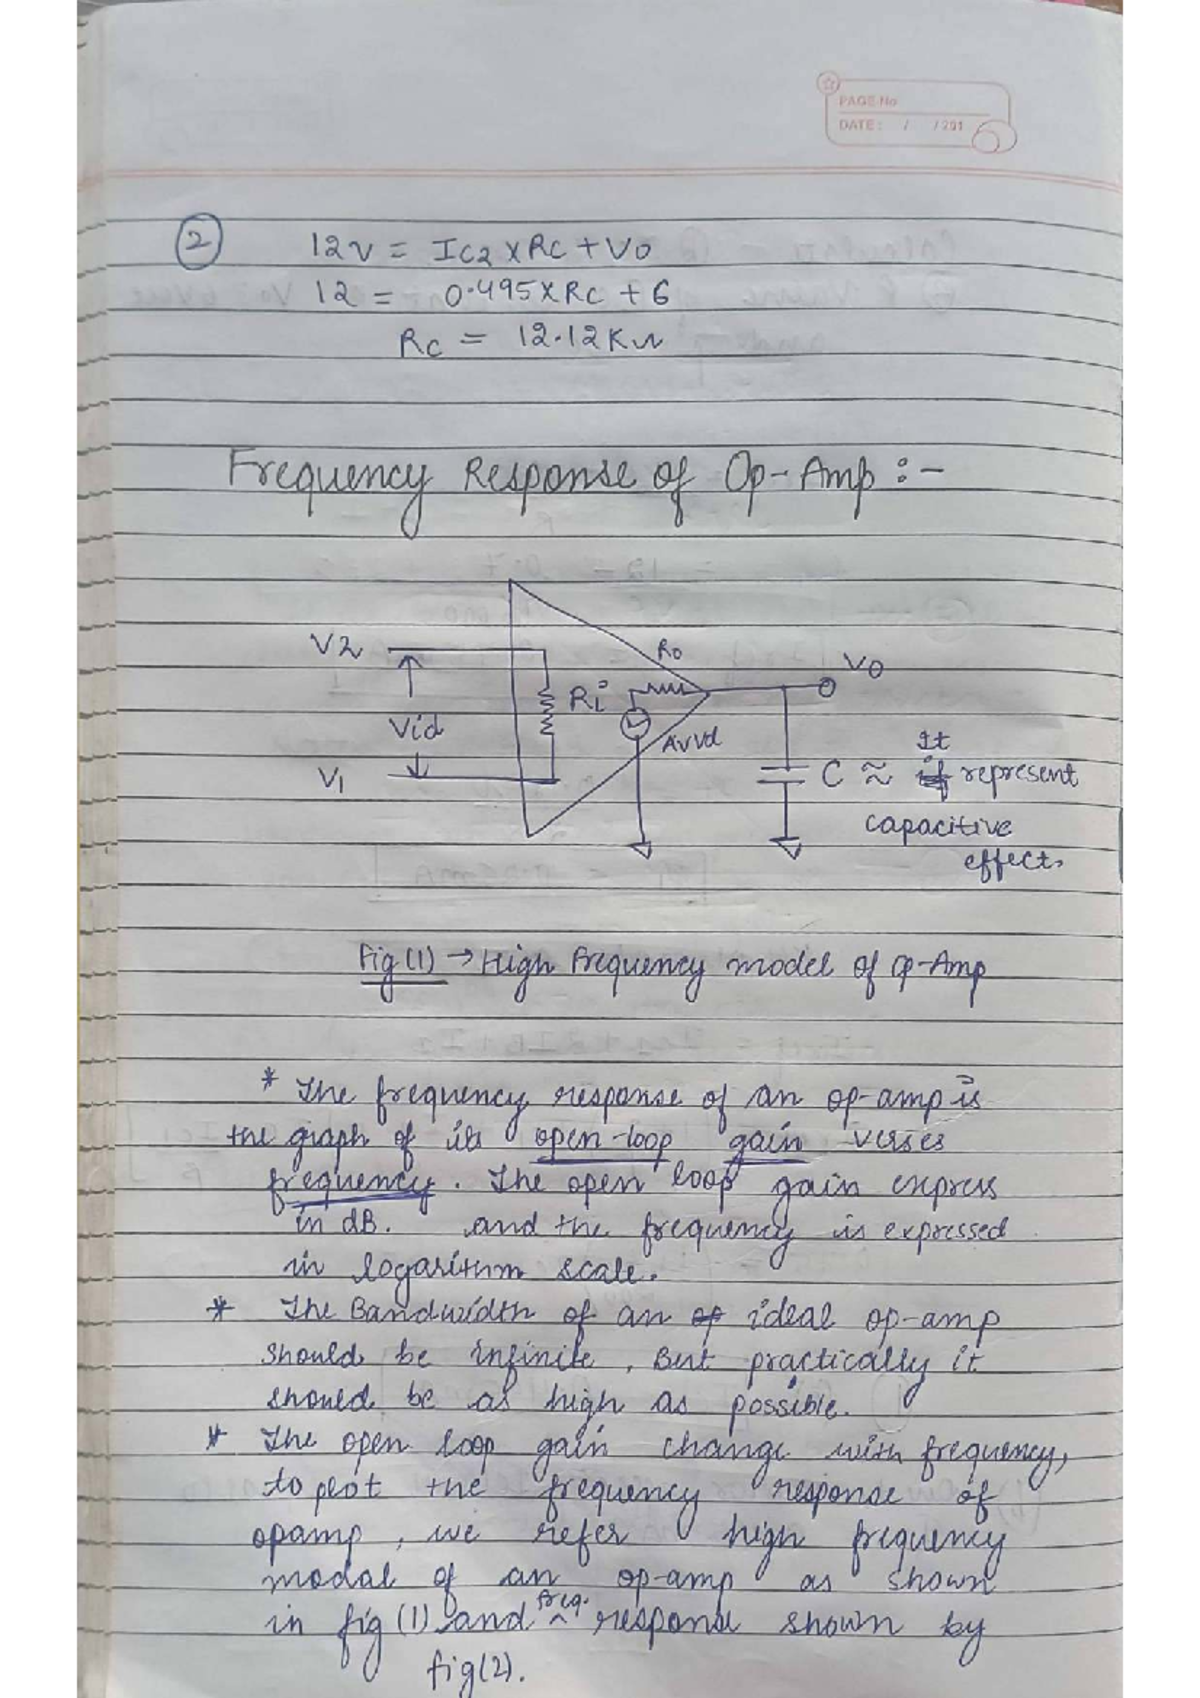 PAGE No
DATE: / /201
② 12V = IC2 X RC + VO
12 = 0.495 X RC + 6
RC = 12.12K
Frequency Response of Op-Amp :-
Ro
V2
VO
Ri
Vid
AvVd
It
V1
C ≈ represent
capacitive
effect.
Fig (1) → High Frequency model of OP-Amp
* The frequency response of an op-amp is
the graph of its open-loop gain verses
frequency. The open loop gain express
in dB. and the frequency is expressed
in logarithm scale.
* The Bandwidth of an op ideal op-amp
should be infinite, But practically it
should be as high as possible.
* The open loop gain change with frequency,
to plot the frequency response of
opamp, we refer high frequency
modal of an op-amp as shown
freq.
in fig (1) and ^ response shown by
fig (2).